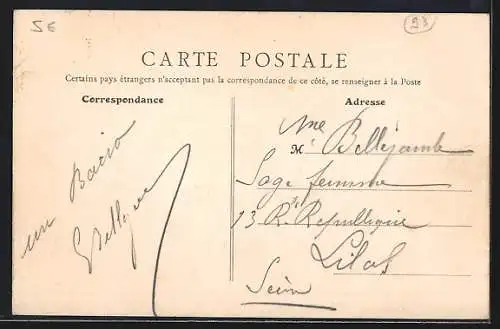 5€
28
CARTE POSTALE
Certains pays étrangers n'acceptant pas la correspondance de ce côté, se renseigner à la Poste
Correspondance
Adresse
un Bacio
Mme
M. Bellejambe
Sage femme
13 R. République
Lilas
Seine